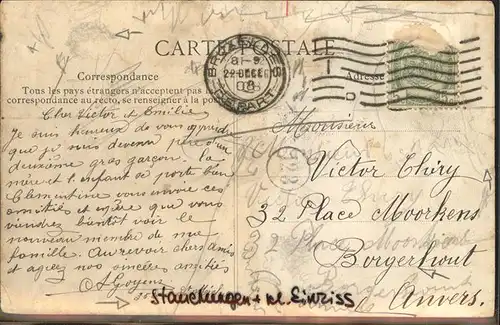 CARTE POSTALE
Correspondance
Tous les pays étrangers n'acceptent pas
correspondance au recto, se renseigner à la
Adresse
BRUXELLES
22 DEC
08
DEPART
Cher Victor et Emilie
Je suis heureux de vous apprendre
que je suis devenu père d'un
deuxième gros garçon. La
mère et l'enfant se porte bien
Clementine vous envoie ces
amitiés et espère que vous
viendrez bientôt voir le
nouveau membre de ma
famille. Au revoir chers amis
et agréez nos sincères amitiés
Goyens
Monsieur
Victor Théry
32 Place Moorkens
Borgerhout
Anvers.
Stauchungen + kl. Einriss